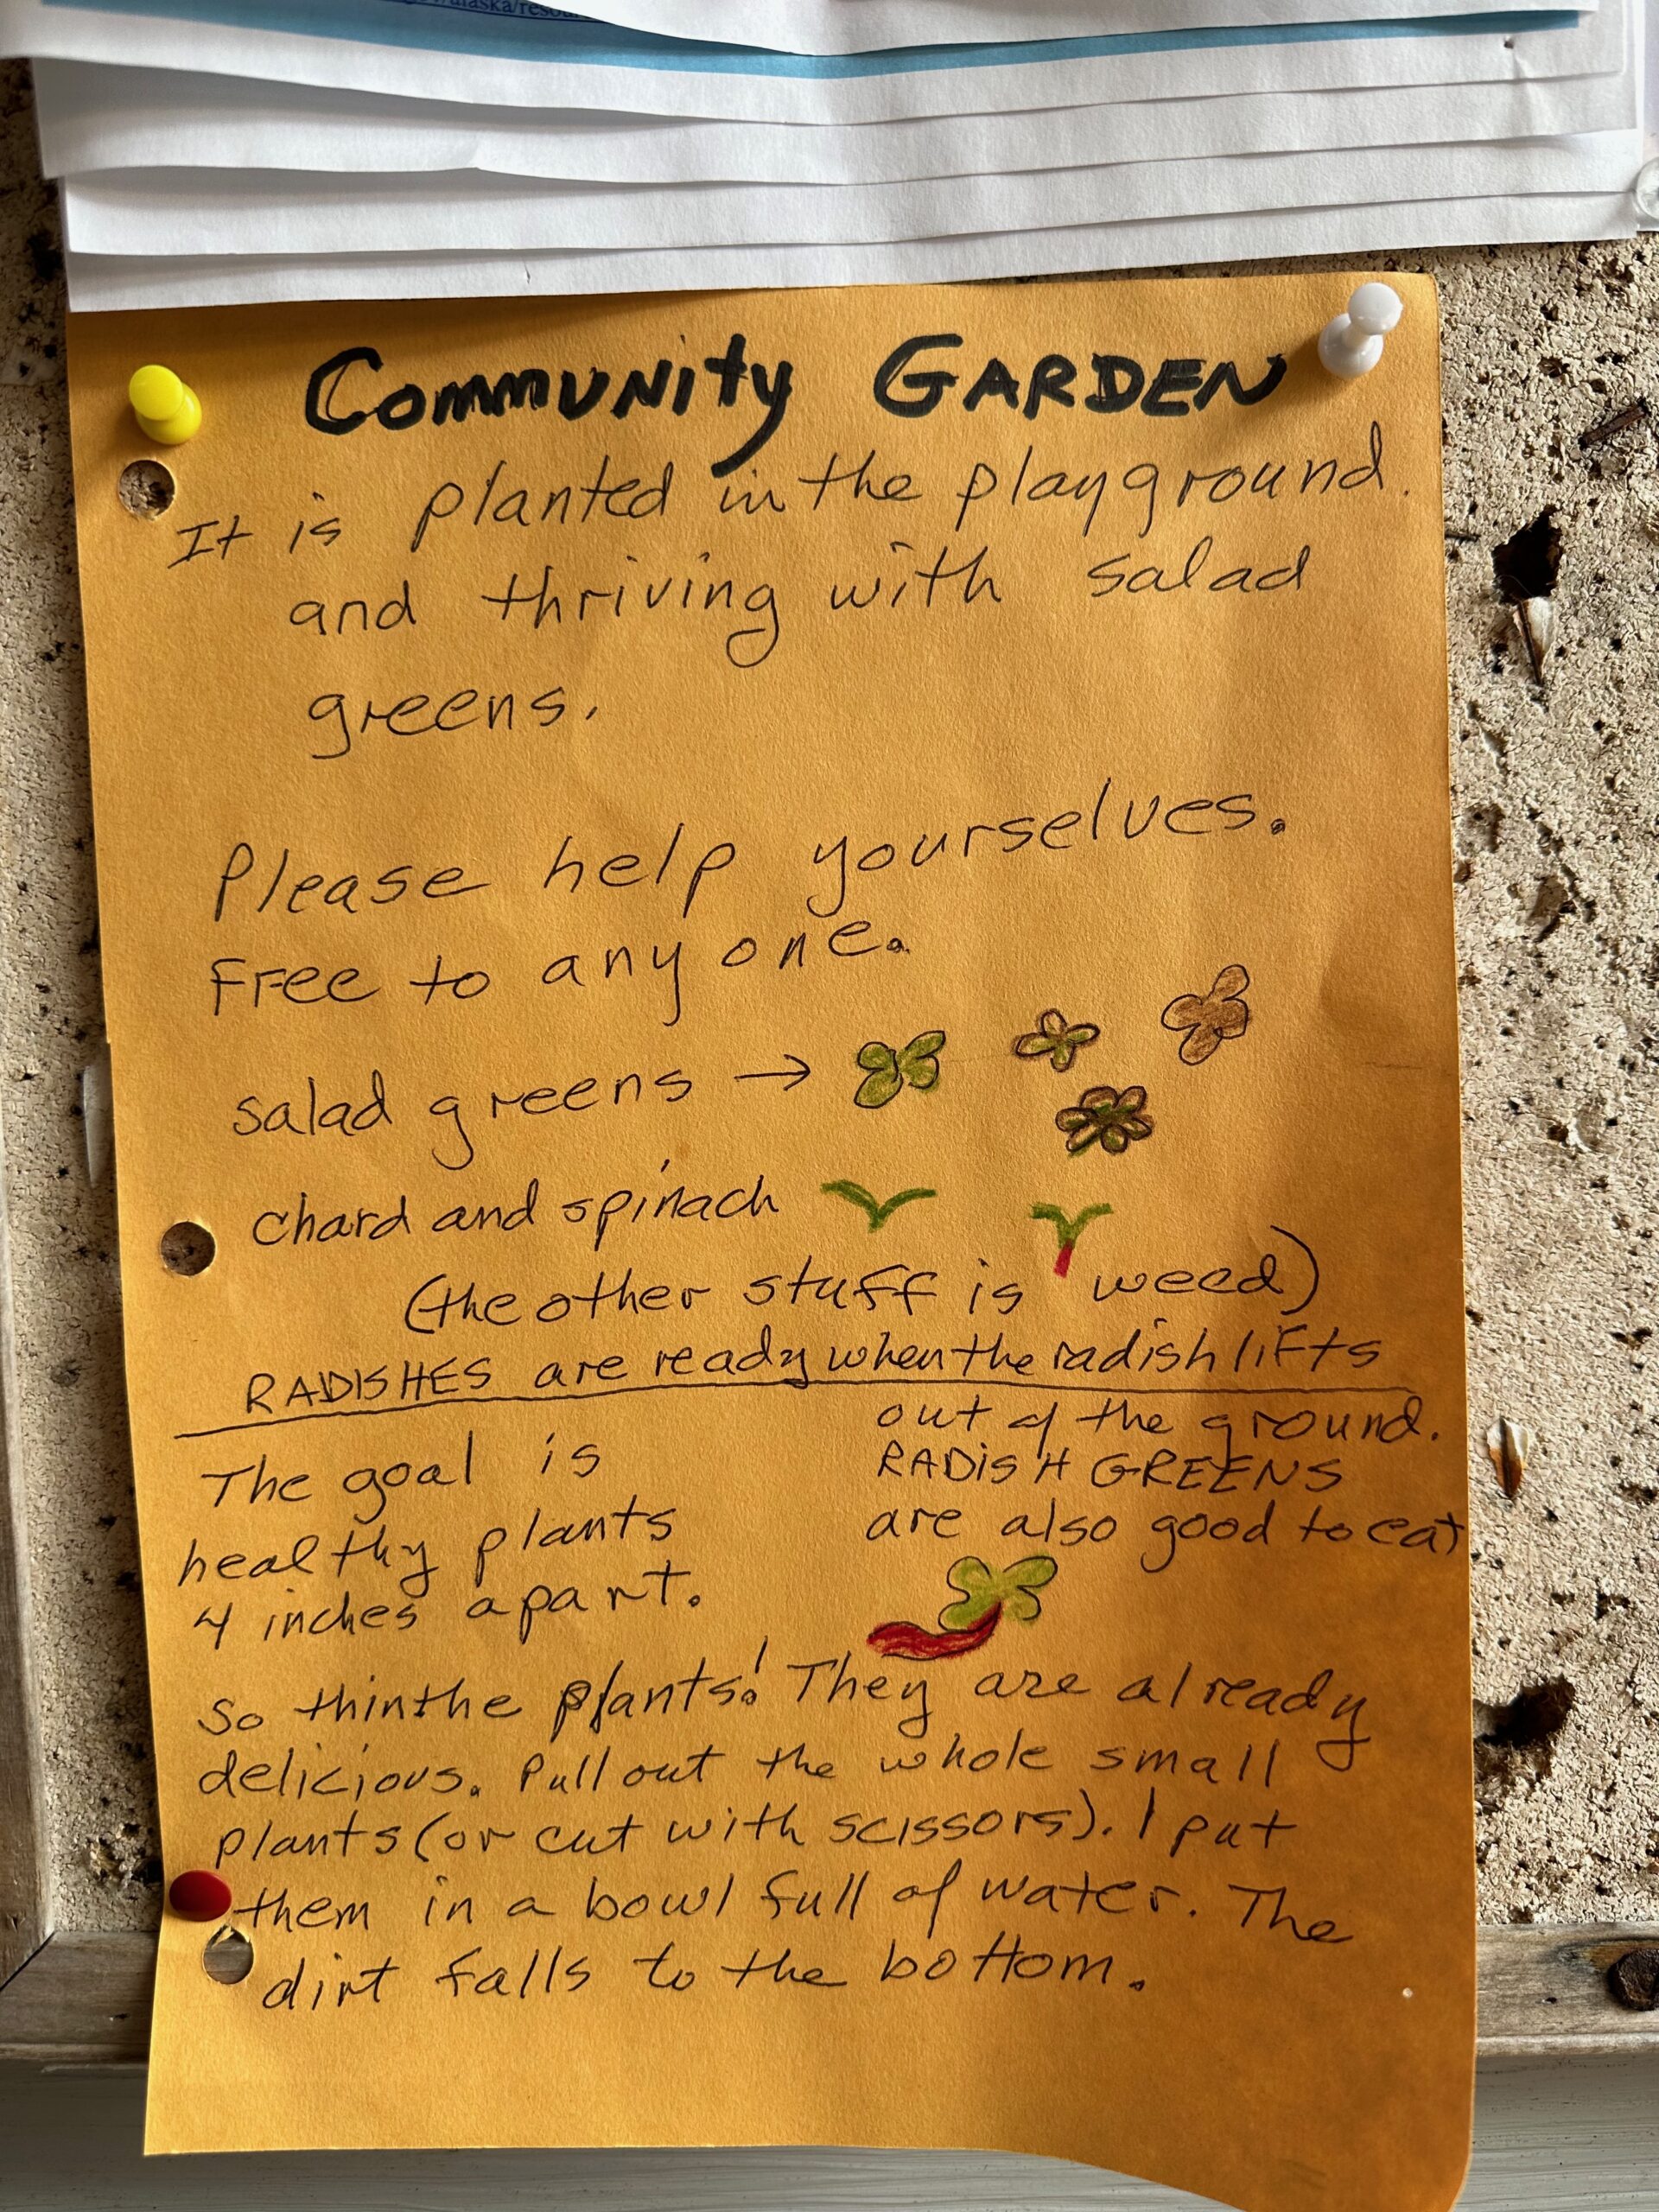 alaska/resour
Community GARDEN
It is planted in the playground.
and thriving with salad
greens.
Please help yourselves.
Free to any one.
salad greens →
chard and spinach
(the other stuff is weed)
RADISHES are ready when the radish lifts
out of the ground.
RADISH GREENS
are also good to eat
The goal is
healthy plants
4 inches apart.
So thin the plants! They are already
delicious. Pull out the whole small
plants (or cut with scissors). I put
them in a bowl full of water. The
dirt falls to the bottom.